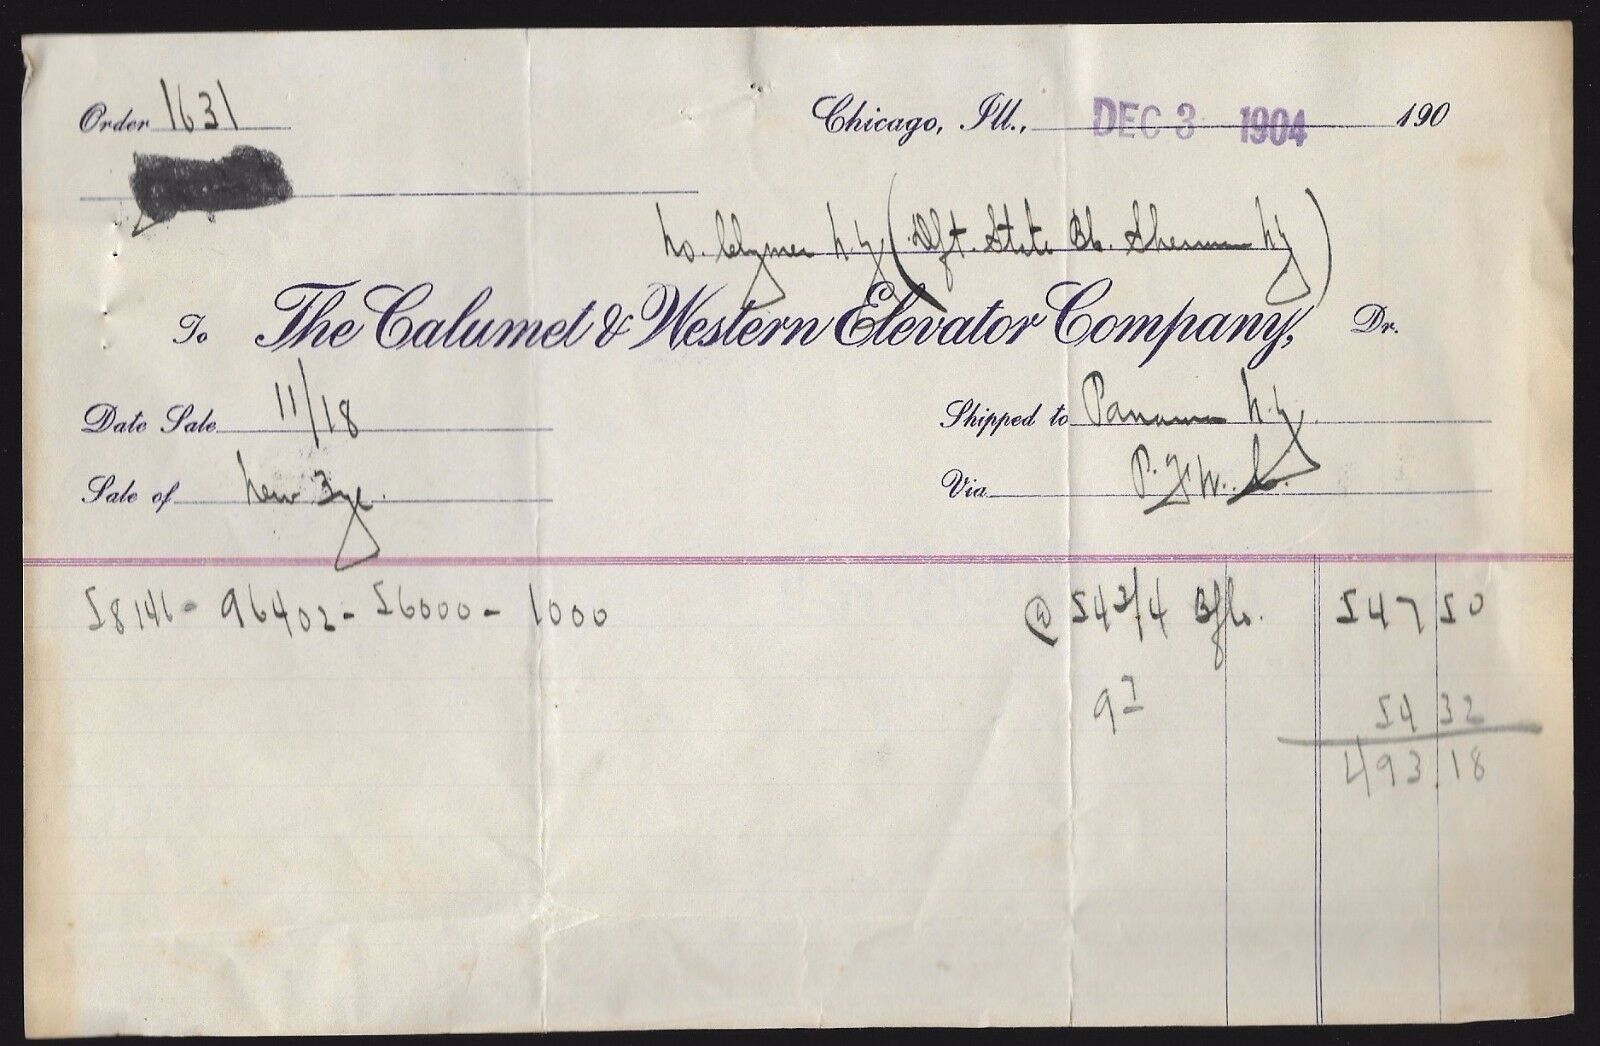 Order 1631 Chicago, Ill., DEC 3 1904 190
No. Clymer N.Y. (Dft. State Bk. Sherman N.Y)
To The Calumet & Western Elevator Company, Dr.
Date Sale 11/18 Shipped to Panama N.Y.
Sale of New 3 ye. Via P. Ft W. & C.
58146 - 96402 - 56000 - 1000 @ 54 3/4 Bflo. 547 50
97 54 32
493.18